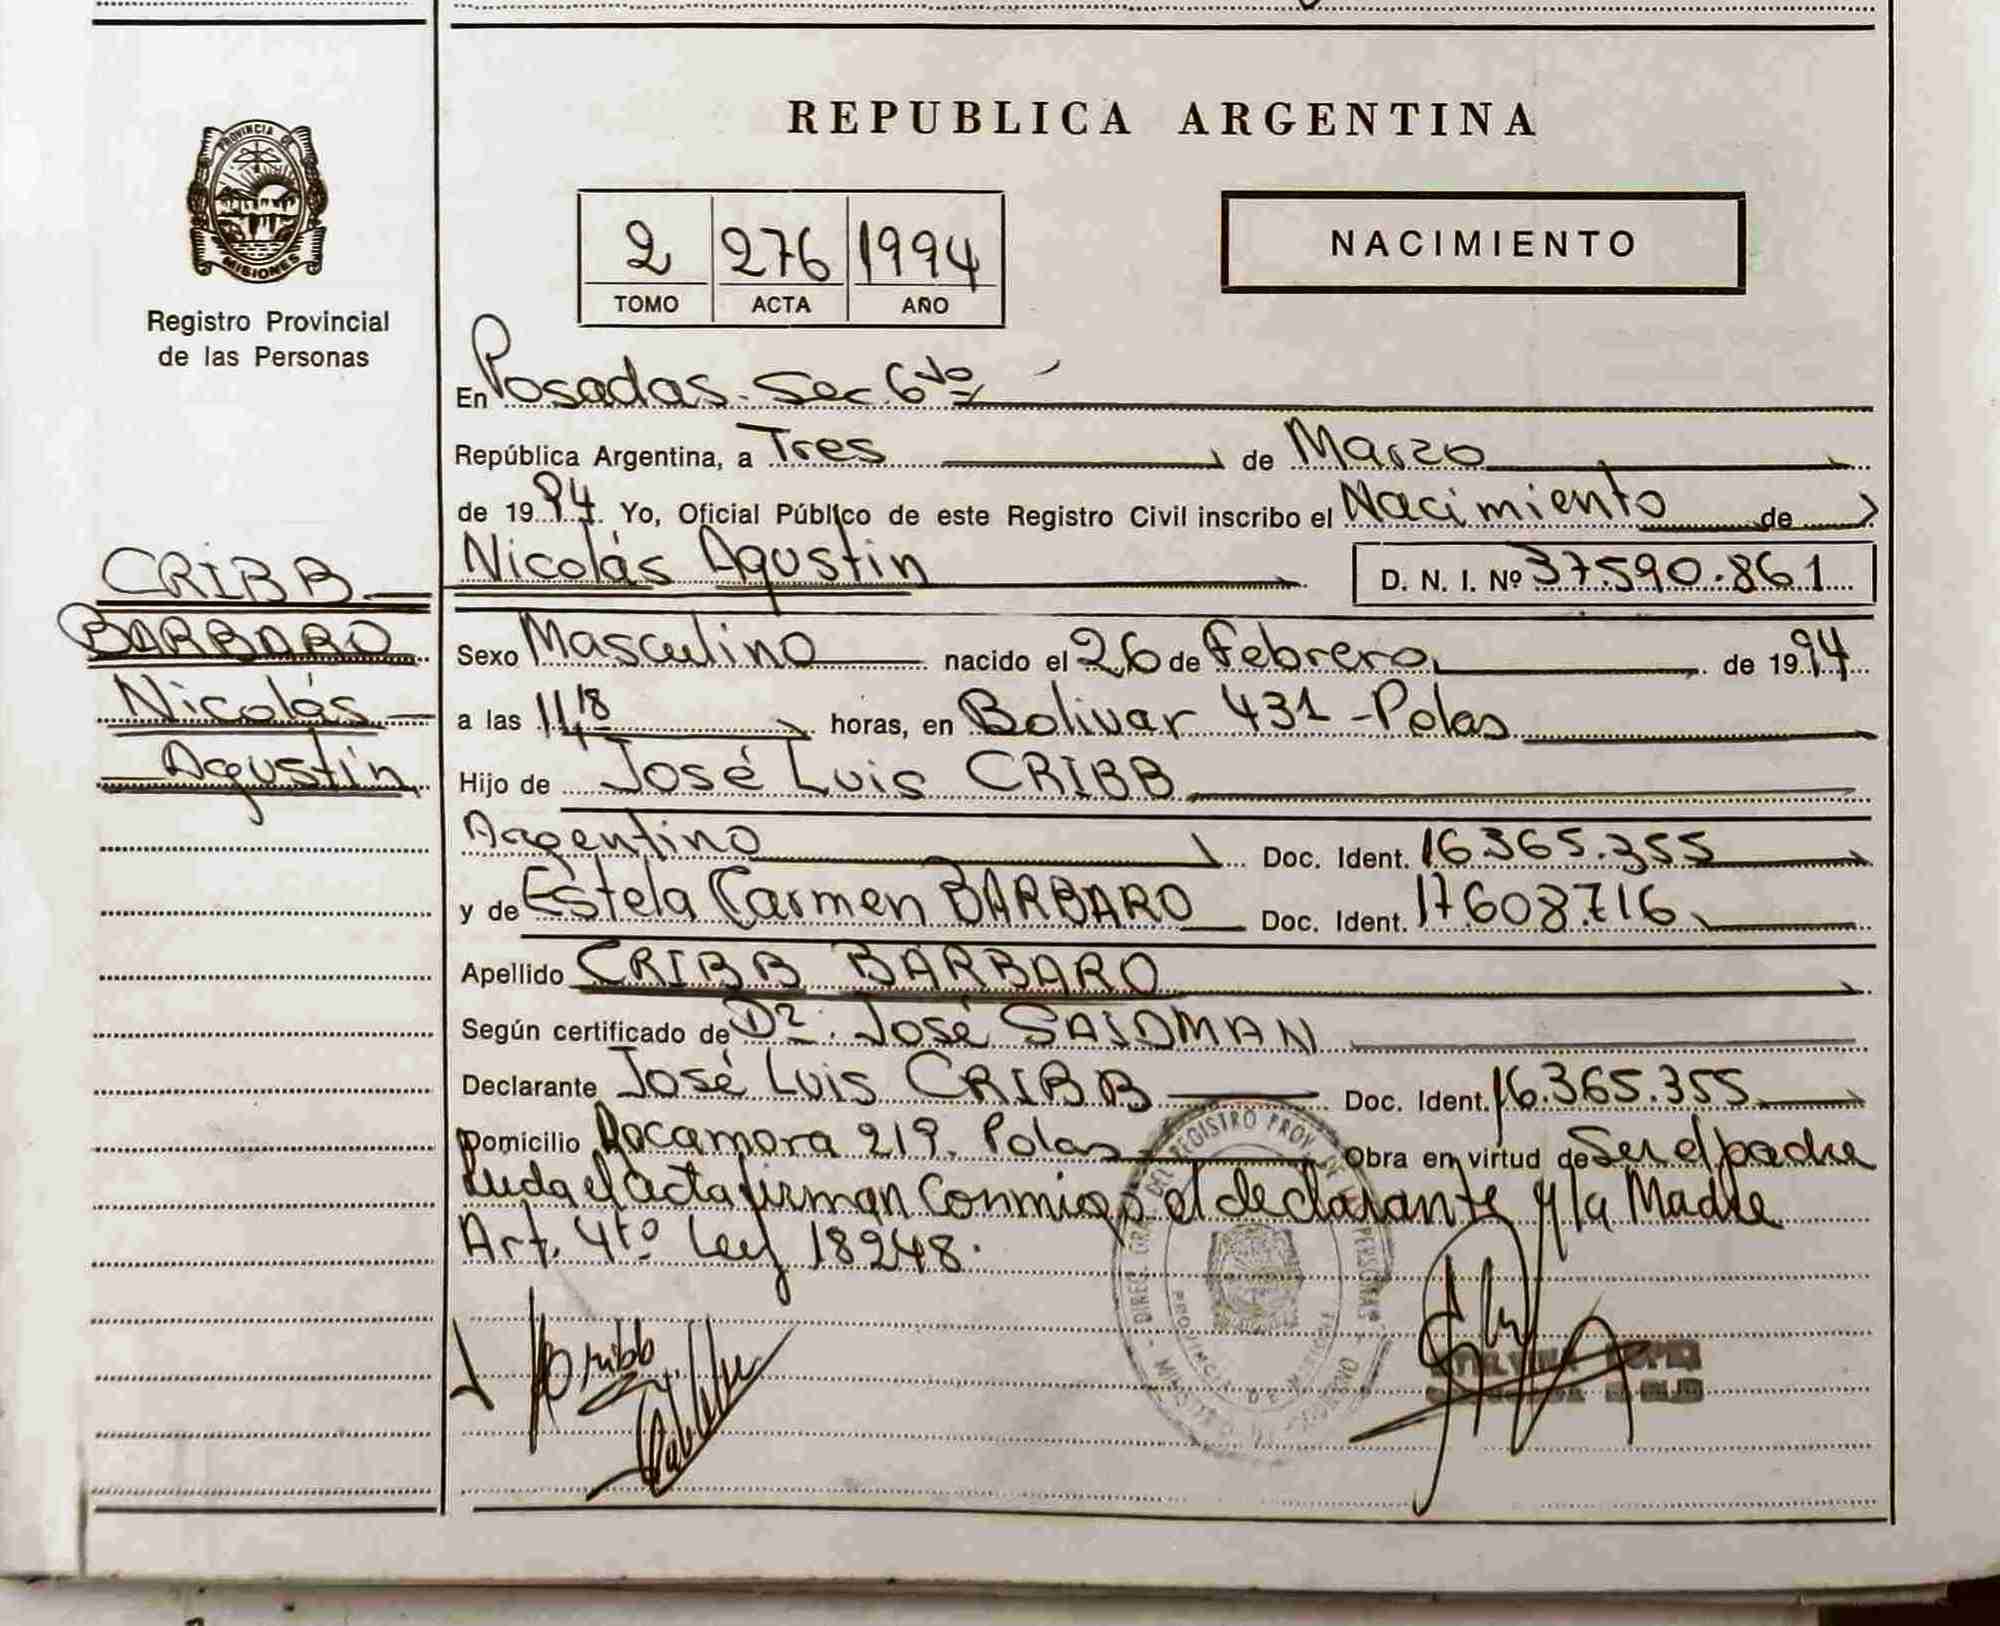 REPUBLICA ARGENTINA
PROVINCIA DE
MISIONES
Registro Provincial
de las Personas
2 276 1994
TOMO ACTA AÑO
NACIMIENTO
En Posadas. Sec. 6ta
República Argentina, a Tres de Marzo
de 1994. Yo, Oficial Público de este Registro Civil inscribo el Nacimiento de
Nicolás Agustin D. N. I. Nº 37.590.861
CRIBB
BARBARO
Nicolás
Agustín
Sexo Masculino nacido el 26 de Febrero de 1994
a las 11,18 horas, en Bolivar 431 - Pdas
Hijo de José Luis CRIBB
Argentino Doc. Ident. 16.365.355
y de Estela Carmen BARBARO Doc. Ident. 17.608.716
Apellido CRIBB BARBARO
Según certificado de Dr. José SAIDMAN
Declarante José Luis CRIBB Doc. Ident. 16.365.355
Domicilio Rocamora 219. Pdas Obra en virtud de Ser el padre
Leida el acta firman Conmigo el declarante y la Madre
Art. 4to Ley 18248.